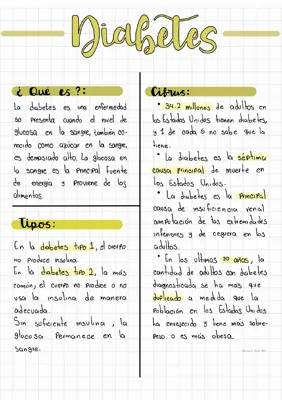 Diabetes
¿ Que es ?:
La diabetes es una enfermedad
se presenta cuando el nivel de
glucosa en la sangre, también co-
nocido como azúcar en la sangre,
es demasiado alto. La glucosa en
la sangre es la principal fuente
de energia y proviene de los
alimentos.
Tipos:
En la diabetes tipo 1, el cuerpo
no produce insulina.
En la diabetes tipo 2, la más
común, el cuerpo no produce o no
usa la insulina de manera
adecuada.
Sin suficiente insulina, la
glucosa Permanece en la
sangre.
Cifras:
• 34.2 millones de adultos en
los Estados Unidos tienen diabetes,
y 1 de cada 5 no sabe que la
tiene.
• La diabetes es la séptima
causa principal de muerte en
los Estados Unidos.
• La diabetes es la Principal
causa de insuficiencia renal
amputación de las extremidades
inferiores y de ceguera en los
adultos.
• En los ultimos 20 años, la
cantidad de adultos con diabetes
diagnosticada se ha más que
duplicado a medida que la
Población en los Estados Unidos
ha envejecido y tiene más sobre-
peso o es más obesa.